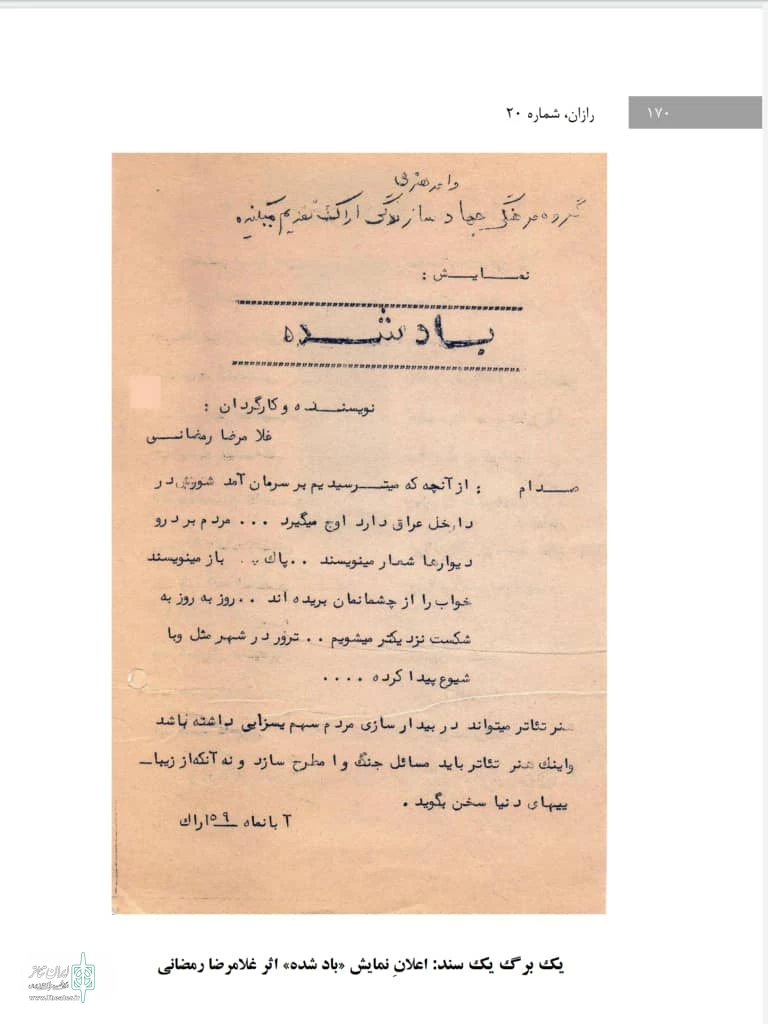 ۱۷۰
رازان، شماره ۲۰
واحد هنری
گروه فرهنگی جهاد سازندگی اراک تقدیم میکنند
نمــایــش :
بــاد شــده
نویسنــده و کارگردان :
غلا مرضا رمضانــی
صــدام : از آنچه که میتــرسیدیم بر سرمان آمد شورش در
داخل عراق دارد اوج میگیرد ... مردم بر در و
دیوارها شعار مینویسند .. پاک .. باز مینویسند
خواب را از چشمانمان بریده اند .. روز به روز به
شکست نزدیکتر میشویم .. ترور در شهر مثل وبا
شیوع پیدا کرده ....
هنر تئاتر میتواند در بیدار سازی مردم سهم بسزایی داشته باشد
واینک هنر تئاتر باید مسائل جنگ را مطرح سازد و نه آنکه از زیبا ــ
ییهای دنیا سخن بگوید .
آبانماه ۵۹ اراک
یک برگ یک سند: اعلانِ نمایش «باد شده» اثر غلامرضا رمضانی
ایران تئاتر
www.Theater.ir